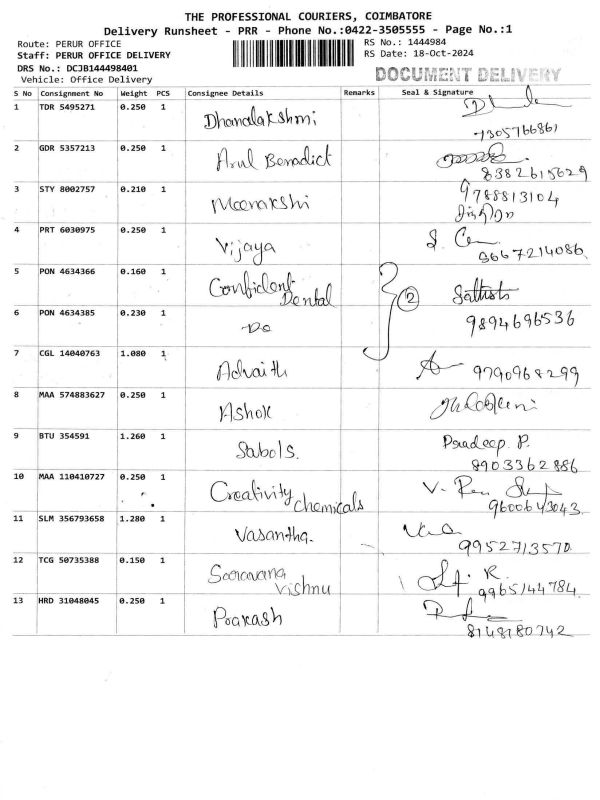 THE PROFESSIONAL COURIERS, COIMBATORE
Delivery Runsheet - PRR - Phone No.:0422-3505555 - Page No.:1
Route: PERUR OFFICE
Staff: PERUR OFFICE DELIVERY
DRS No.: DCJB144498401
Vehicle: Office Delivery
RS No.: 1444984
RS Date: 18-Oct-2024
DOCUMENT DELIVERY
S No Consignment No Weight PCS Consignee Details Remarks Seal & Signature
1 TDR 5495271 0.250 1 Dhanalakshmi
7305766861
2 GDR 5357213 0.250 1 Arul Benadict
8382615629
3 STY 8002757 0.210 1 Meenakshi 9788813104
4 PRT 6030975 0.250 1 Vijaya
8667214086
5 PON 4634366 0.160 1 Confident Dental 2 Sathish
6 PON 4634385 0.230 1 Do 9894696536
7 CGL 14040763 1.080 1 Advaith 9790968299
8 MAA 574883627 0.250 1 Ashok
9 BTU 354591 1.260 1 Sabols. Pradeep P.
8903362886
10 MAA 110410727 0.250 1 Creativity chemicals
9600643043
11 SLM 356793658 1.280 1 Vasantha.
9952713570
12 TCG 50735388 0.150 1 Saravana Vishnu
9965144784
13 HRD 31048045 0.250 1 Prakash
8148180742